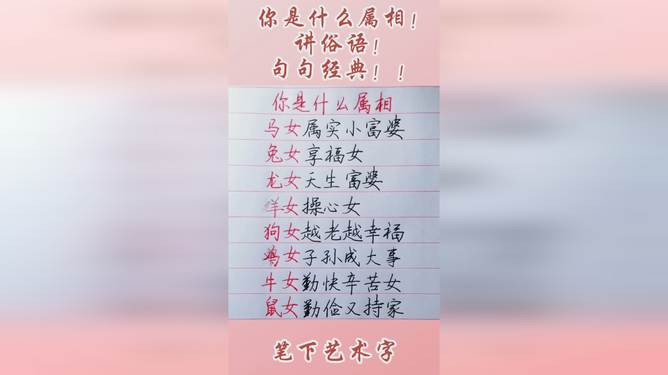 你是什么属相！
讲俗语！
句句经典！！
你是什么属相
马女属实小富婆
兔女享福女
龙女天生富婆
羊女操心女
狗女越老越幸福
鸡女子孙成大事
牛女勤快辛苦女
鼠女勤俭又持家
笔下艺术字